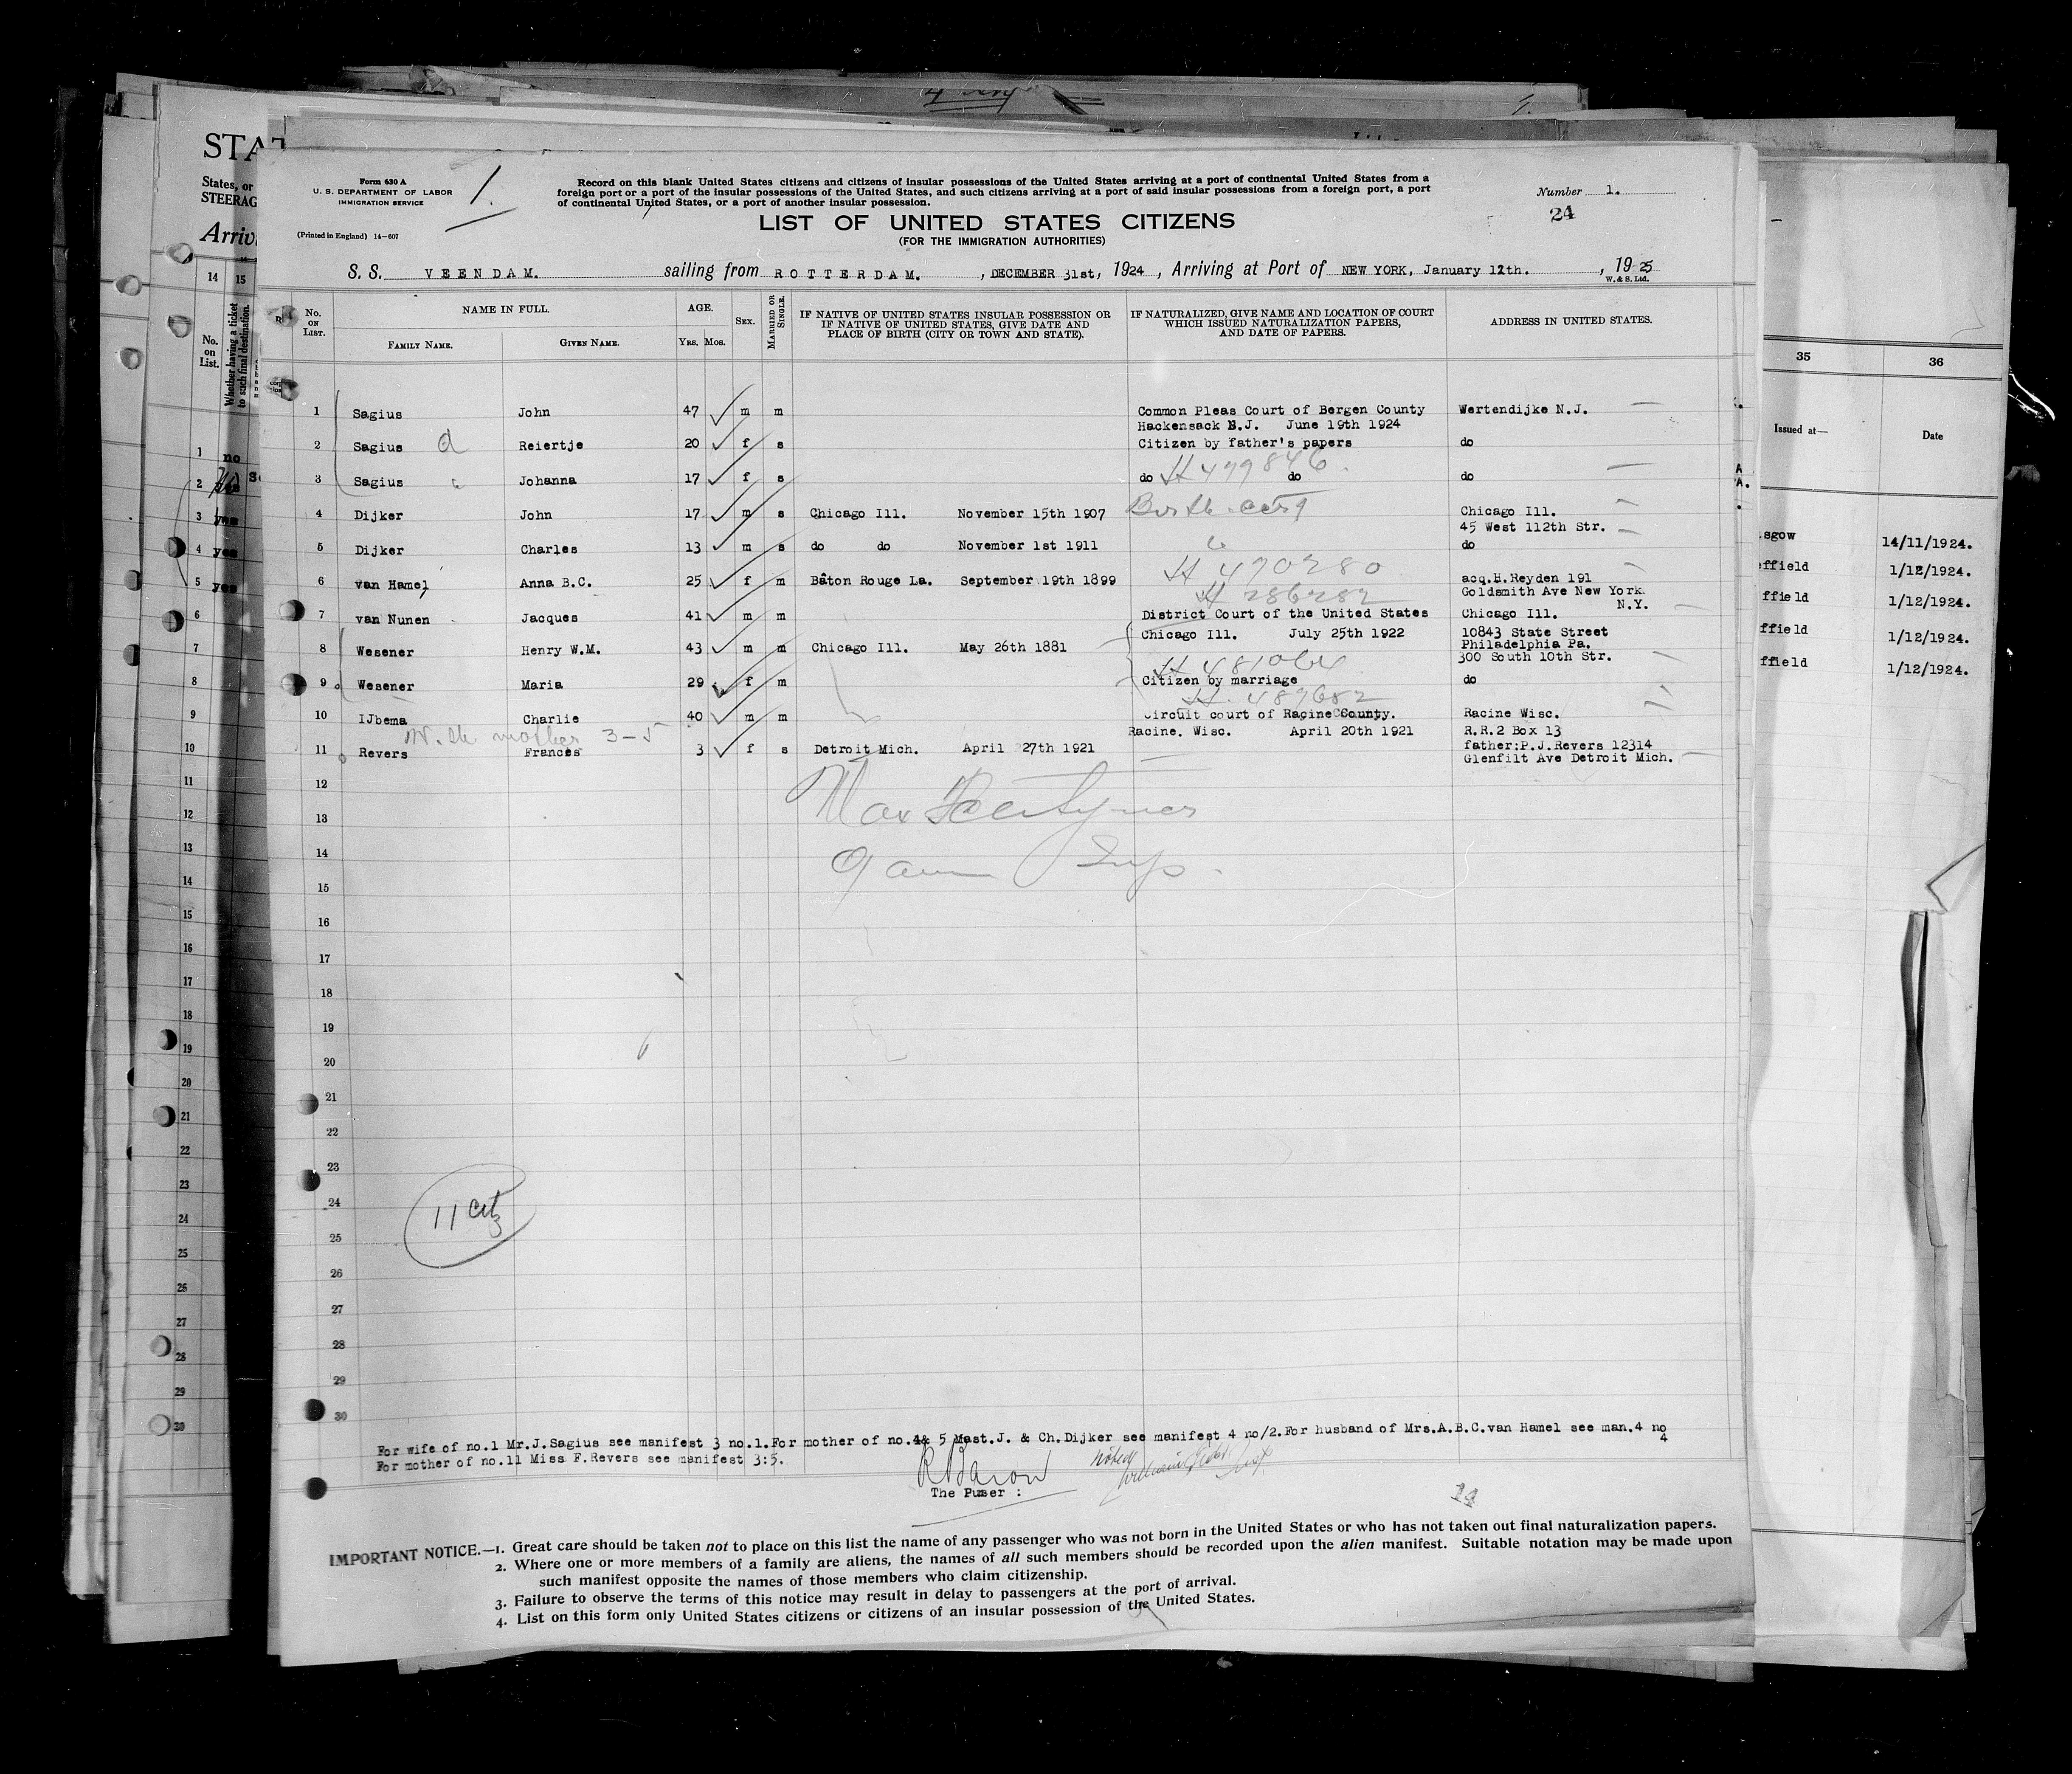 STAT
States, or
STEERAG
Arriv
Form 630 A
U. S. DEPARTMENT OF LABOR
IMMIGRATION SERVICE
(Printed in England) 14—607
1.
Record on this blank United States citizens and citizens of insular possessions of the United States arriving at a port of continental United States from a
foreign port or a port of the insular possessions of the United States, and such citizens arriving at a port of said insular possessions from a foreign port, a port
of continental United States, or a port of another insular possession.
Number 1.
24
LIST OF UNITED STATES CITIZENS
(FOR THE IMMIGRATION AUTHORITIES)
S. S. VEENDAM. sailing from ROTTERDAM. , DECEMBER 31st, 1924 , Arriving at Port of NEW YORK, January 12th. , 1925
W. & S. Ltd.
No. ON LIST. NAME IN FULL. FAMILY NAME. GIVEN NAME. AGE. YRS. MOS. SEX. MARRIED OR SINGLE.
IF NATIVE OF UNITED STATES INSULAR POSSESSION OR
IF NATIVE OF UNITED STATES, GIVE DATE AND
PLACE OF BIRTH (CITY OR TOWN AND STATE).
IF NATURALIZED, GIVE NAME AND LOCATION OF COURT
WHICH ISSUED NATURALIZATION PAPERS,
AND DATE OF PAPERS.
ADDRESS IN UNITED STATES.
1 Sagius John 47 m m Common Pleas Court of Bergen County Wertendijke N.J.
Hackensack N.J. June 19th 1924
2 Sagius Reiertje 20 f s Citizen by father's papers do
3 Sagius Johanna 17 f s do H 479846 do do
4 Dijker John 17 m s Chicago Ill. November 15th 1907 Birth cert Chicago Ill.
45 West 112th Str.
5 Dijker Charles 13 m s do do November 1st 1911 do
H 470280
6 van Hamel Anna B.C. 25 f m Bâton Rouge La. September 19th 1899 acq.H.Reyden 191
H 286282 Goldsmith Ave New York
N.Y.
7 van Nunen Jacques 41 m m District Court of the United States Chicago Ill.
Chicago Ill. July 25th 1922 10843 State Street
8 Wesener Henry W.M. 43 m m Chicago Ill. May 26th 1881 Philadelphia Pa.
300 South 10th Str.
9 Wesener Maria 29 f m Citizen by marriage do
H. 489682
10 IJbema Charlie 40 m m Circuit court of Racine County. Racine Wisc.
With mother 3-5 Racine. Wisc. April 20th 1921 R.R.2 Box 13
11 Revers Frances 3 f s Detroit Mich. April 27th 1921 father:P.J.Revers 12314
Glenfilt Ave Detroit Mich.
12
13
14
Insp.
15
16
17
18
19
20
21
22
23
24
11 citz
25
26
27
28
29
30
For wife of no.1 Mr.J.Sagius see manifest 3 no.1.For mother of no.4& 5 Mast.J. & Ch.Dijker see manifest 4 no/2.For husband of Mrs.A.B.C.van Hamel see man.4 no
4
For mother of no.11 Miss F.Revers see manifest 3:5.
The Purser :
14
IMPORTANT NOTICE.—1. Great care should be taken not to place on this list the name of any passenger who was not born in the United States or who has not taken out final naturalization papers.
2. Where one or more members of a family are aliens, the names of all such members should be recorded upon the alien manifest. Suitable notation may be made upon
such manifest opposite the names of those members who claim citizenship.
3. Failure to observe the terms of this notice may result in delay to passengers at the port of arrival.
4. List on this form only United States citizens or citizens of an insular possession of the United States.
14 15
No. on List.
Whether having a ticket to such final destination.
1 no
2 yes
3 yes
4 yes
5 yes
6
7
8
9
10
11
12
13
14
15
16
17
18
19
20
21
22
23
24
25
26
27
28
29
30
35 36
Issued at— Date
sgow 14/11/1924.
ffield 1/12/1924.
ffield 1/12/1924.
ffield 1/12/1924.
ffield 1/12/1924.